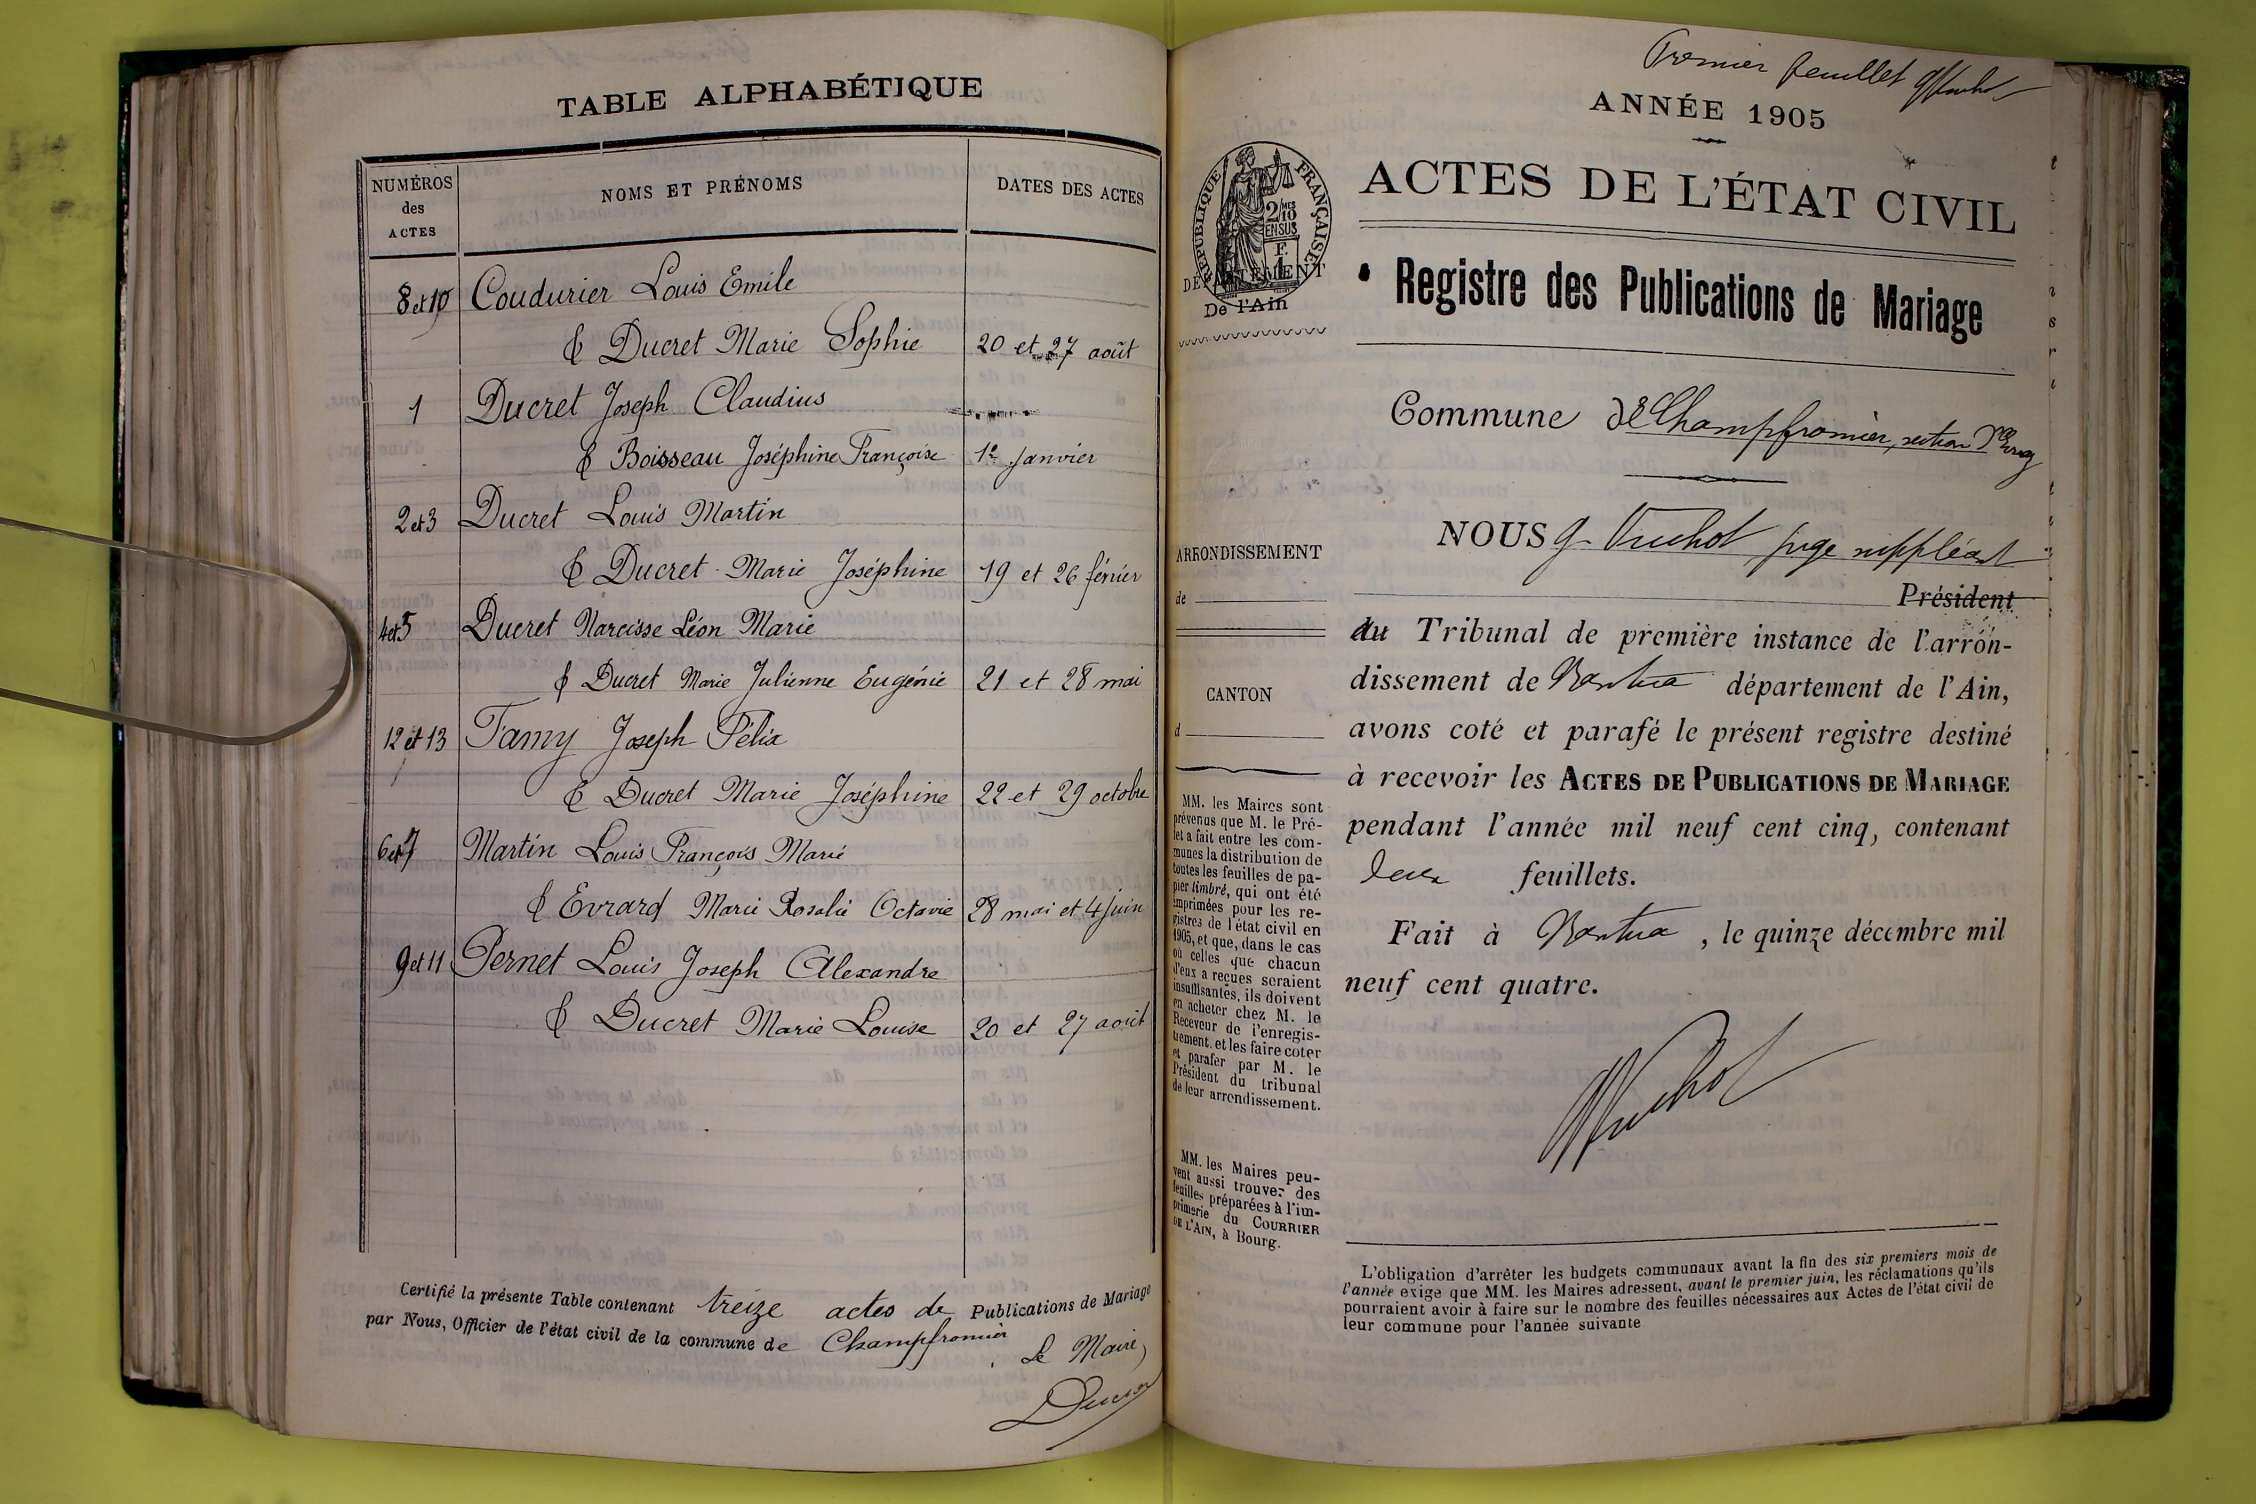 TABLE ALPHABÉTIQUE
NUMÉROS des ACTES
NOMS ET PRÉNOMS
DATES DES ACTES
8 et 10 Coudurier Louis Emile
& Ducret Marie Sophie 20 et 27 août
1 Ducret Joseph Claudius
& Boisseau Joséphine Françoise 1er janvier
2 et 3 Ducret Louis Martin
& Ducret Marie Joséphine 19 et 26 février
4 et 5 Ducret Narcisse Léon Marie
& Ducret Marie Julienne Eugénie 21 et 28 mai
12 et 13 Famy Joseph Félix
& Ducret Marie Joséphine 22 et 29 octobre
6 et 7 Martin Louis François Marie
& Evrard Marie Rosalie Octavie 28 mai et 4 juin
9 et 11 Pernet Louis Joseph Alexandre
& Ducret Marie Louise 20 et 27 août
Certifié la présente Table contenant treize actes de Publications de Mariage
par Nous, Officier de l'état civil de la commune de Champfromier
Le Maire,
Ducret
Premier feuillet
ANNÉE 1905
ACTES DE L'ÉTAT CIVIL
RÉPUBLIQUE FRANÇAISE
2/10 MES
EN SUS
F
1
DÉPARTEMENT
De l'Ain
Registre des Publications de Mariage
Commune de Champfromier, section
ARRONDISSEMENT
de
CANTON
d
MM. les Maires sont
prévenus que M. le Pré-
fet a fait entre les com-
munes la distribution de
toutes les feuilles de pa-
pier timbré, qui ont été
imprimées pour les re-
gistres de l'état civil en
1905, et que, dans le cas
où celles que chacun
d'eux a reçues seraient
insuffisantes, ils doivent
en acheter chez M. le
Receveur de l'enregis-
trement. et les faire coter
et parafer par M. le
Président du tribunal
de leur arrondissement.
MM. les Maires peu-
vent aussi trouver des
feuilles préparées à l'im-
primerie du COURRIER
DE L'AIN, à Bourg.
NOUS G. Vuchot juge suppléant
Président
du Tribunal de première instance de l'arron-
dissement de Nantua département de l'Ain,
avons coté et parafé le présent registre destiné
à recevoir les ACTES DE PUBLICATIONS DE MARIAGE
pendant l'année mil neuf cent cinq, contenant
deux feuillets.
Fait à Nantua, le quinze décembre mil
neuf cent quatre.
GVuchot
L'obligation d'arrêter les budgets communaux avant la fin des six premiers mois de
l'année exige que MM. les Maires adressent, avant le premier juin, les réclamations qu'ils
pourraient avoir à faire sur le nombre des feuilles nécessaires aux Actes de l'état civil de
leur commune pour l'année suivante